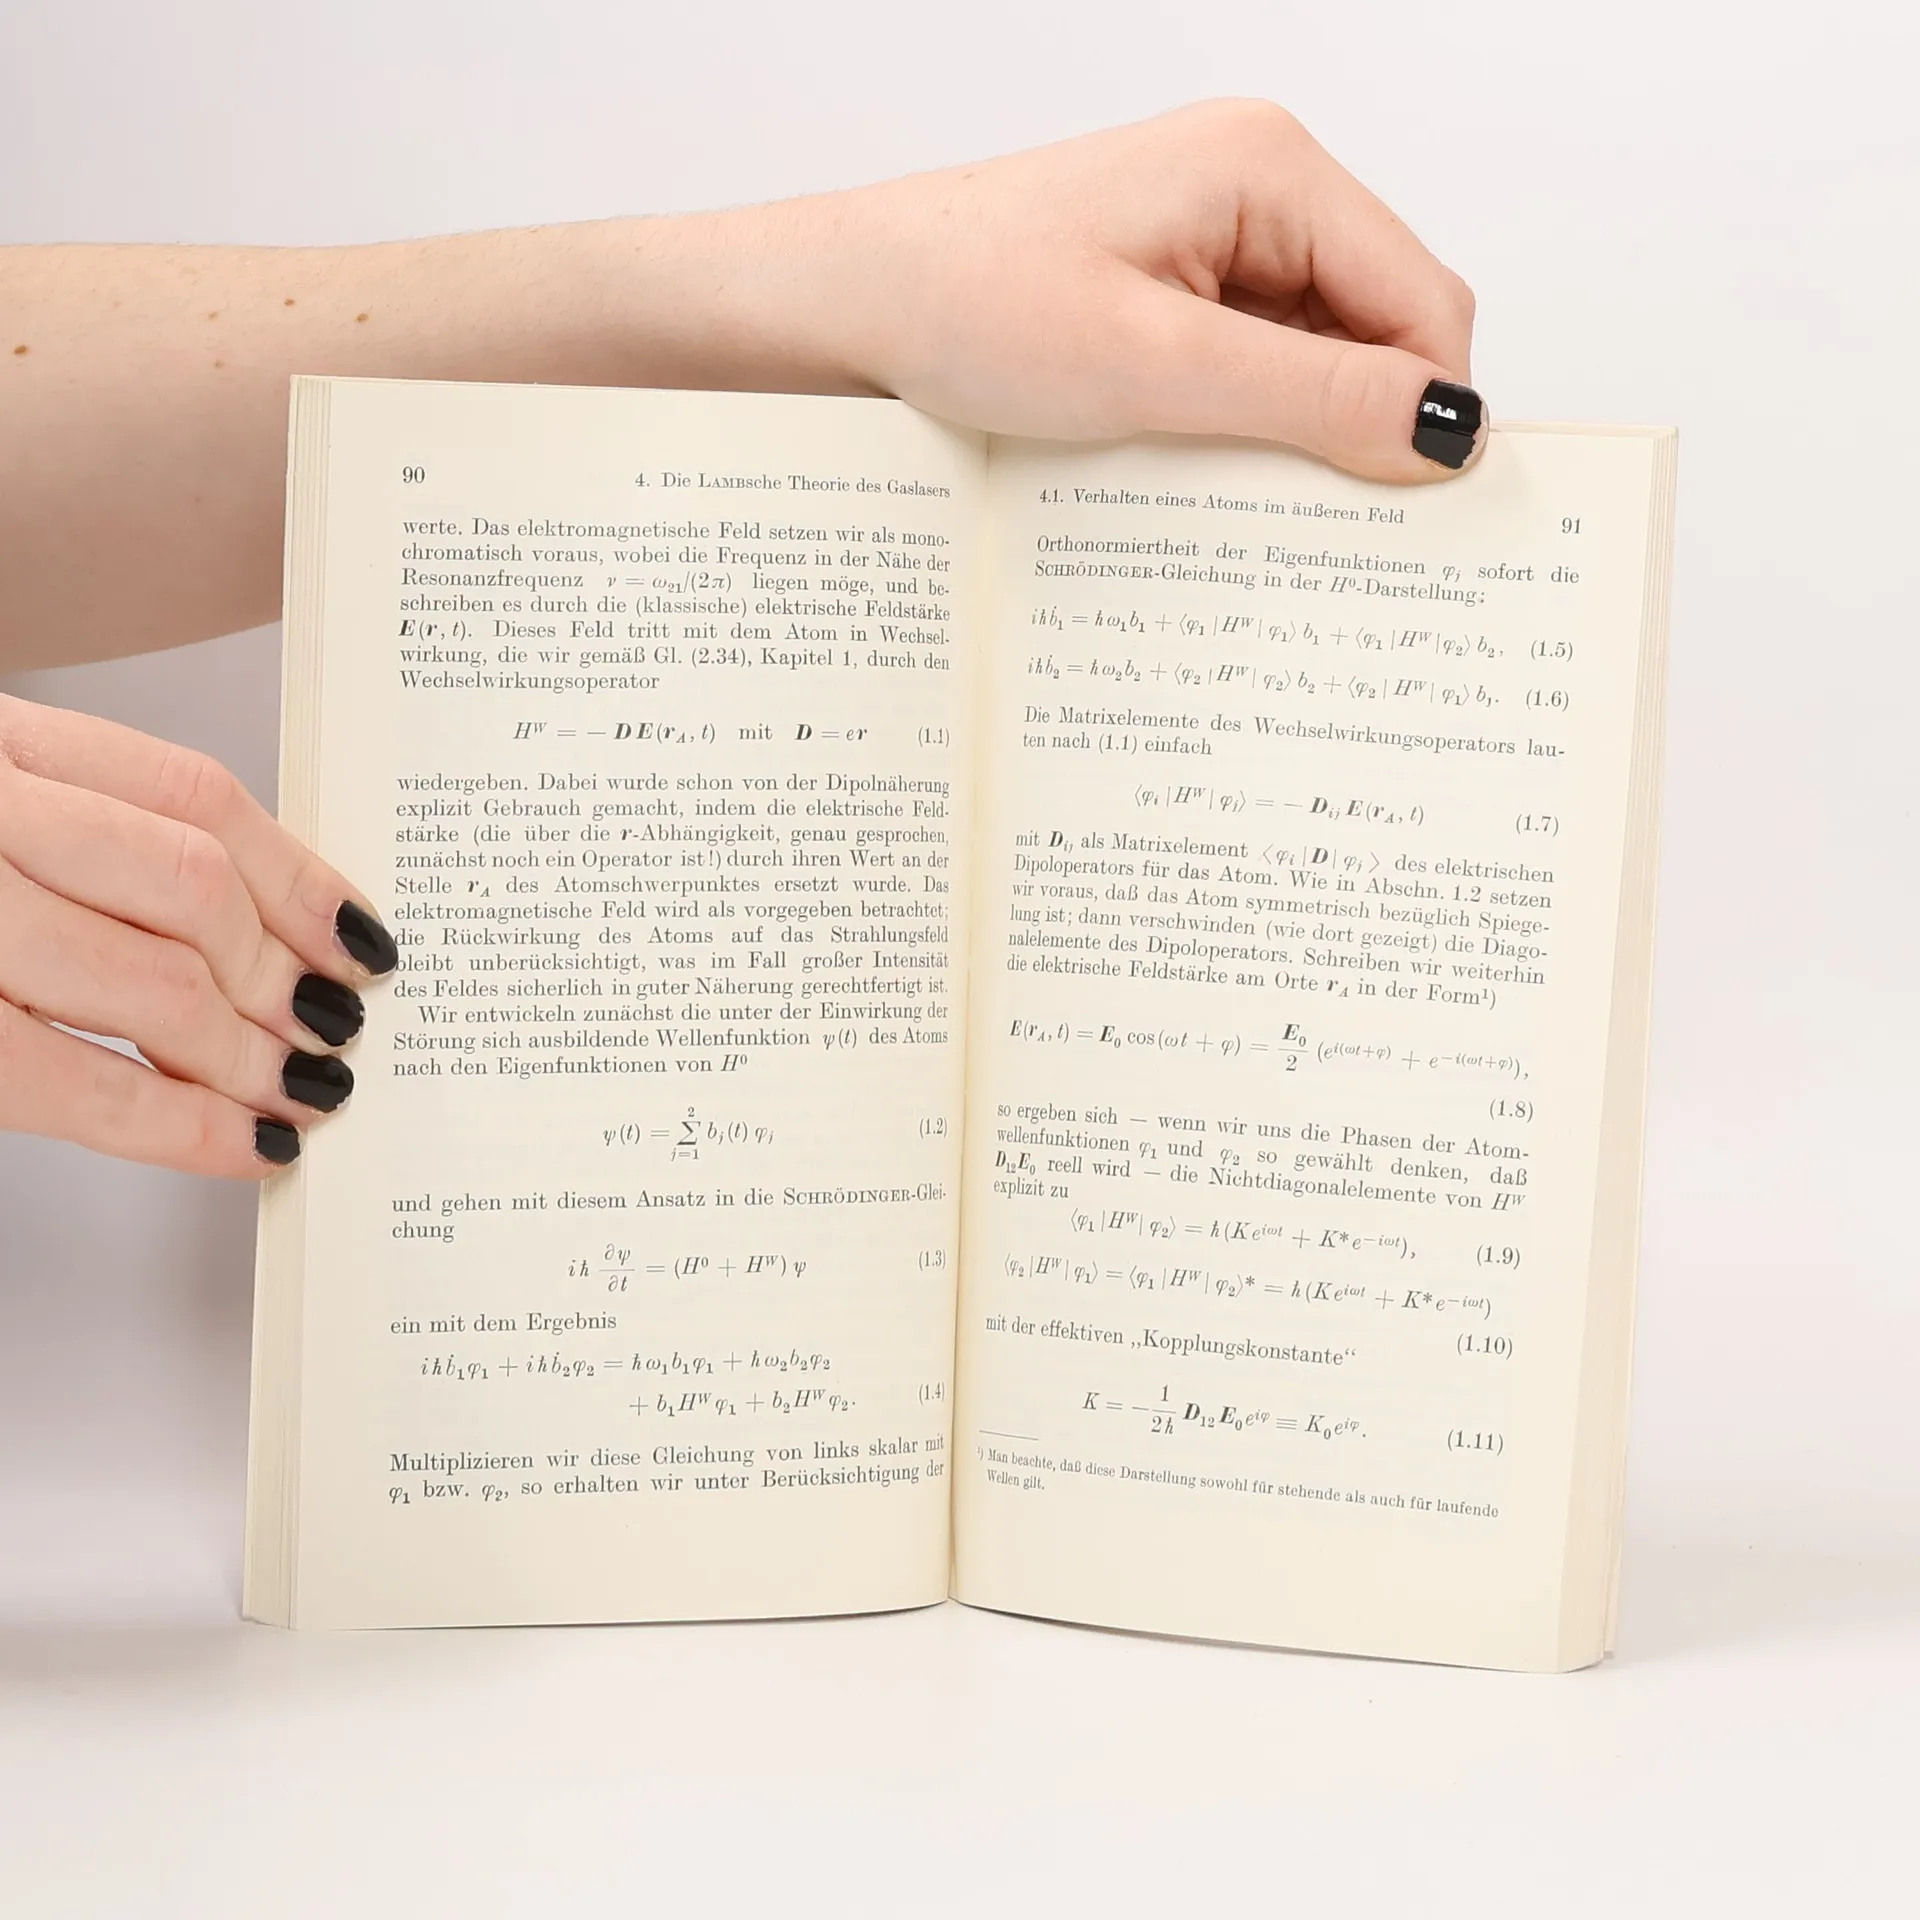 90
4. Die LAMBsche Theorie des Gaslasers
werte. Das elektromagnetische Feld setzen wir als mono-
chromatisch voraus, wobei die Frequenz in der Nähe der
Resonanzfrequenz ν = ω₂₁/(2π) liegen möge, und be-
schreiben es durch die (klassische) elektrische Feldstärke
E(r, t). Dieses Feld tritt mit dem Atom in Wechsel-
wirkung, die wir gemäß Gl. (2.34), Kapitel 1, durch den
Wechselwirkungsoperator
Hᵂ = − D E(r_A, t) mit D = er (1.1)
wiedergeben. Dabei wurde schon von der Dipolnäherung
explizit Gebrauch gemacht, indem die elektrische Feld-
stärke (die über die r-Abhängigkeit, genau gesprochen,
zunächst noch ein Operator ist!) durch ihren Wert an der
Stelle r_A des Atomschwerpunktes ersetzt wurde. Das
elektromagnetische Feld wird als vorgegeben betrachtet;
die Rückwirkung des Atoms auf das Strahlungsfeld
bleibt unberücksichtigt, was im Fall großer Intensität
des Feldes sicherlich in guter Näherung gerechtfertigt ist.
Wir entwickeln zunächst die unter der Einwirkung der
Störung sich ausbildende Wellenfunktion ψ(t) des Atoms
nach den Eigenfunktionen von H⁰
ψ(t) = ∑_{j=1}^{2} b_j(t) φ_j (1.2)
und gehen mit diesem Ansatz in die SCHRÖDINGER-Glei-
chung
iħ ∂ψ/∂t = (H⁰ + Hᵂ) ψ (1.3)
ein mit dem Ergebnis
iħḃ₁φ₁ + iħḃ₂φ₂ = ħω₁b₁φ₁ + ħω₂b₂φ₂
+ b₁Hᵂφ₁ + b₂Hᵂφ₂. (1.4)
Multiplizieren wir diese Gleichung von links skalar mit
φ₁ bzw. φ₂, so erhalten wir unter Berücksichtigung der
4.1. Verhalten eines Atoms im äußeren Feld
91
Orthonormiertheit der Eigenfunktionen φ_j sofort die
SCHRÖDINGER-Gleichung in der H⁰-Darstellung:
iħḃ₁ = ħω₁b₁ + ⟨φ₁|Hᵂ|φ₁⟩ b₁ + ⟨φ₁|Hᵂ|φ₂⟩ b₂, (1.5)
iħḃ₂ = ħω₂b₂ + ⟨φ₂|Hᵂ|φ₂⟩ b₂ + ⟨φ₂|Hᵂ|φ₁⟩ b₁. (1.6)
Die Matrixelemente des Wechselwirkungsoperators lau-
ten nach (1.1) einfach
⟨φ_i|Hᵂ|φ_j⟩ = − D_ij E(r_A, t) (1.7)
mit D_ij als Matrixelement ⟨φ_i|D|φ_j⟩ des elektrischen
Dipoloperators für das Atom. Wie in Abschn. 1.2 setzen
wir voraus, daß das Atom symmetrisch bezüglich Spiege-
lung ist; dann verschwinden (wie dort gezeigt) die Diago-
nalelemente des Dipoloperators. Schreiben wir weiterhin
die elektrische Feldstärke am Orte r_A in der Form¹)
E(r_A, t) = E₀ cos(ωt + φ) = E₀/2 (e^{i(ωt+φ)} + e^{−i(ωt+φ)}),
(1.8)
so ergeben sich — wenn wir uns die Phasen der Atom-
wellenfunktionen φ₁ und φ₂ so gewählt denken, daß
D₁₂E₀ reell wird — die Nichtdiagonalelemente von Hᵂ
explizit zu
⟨φ₁|Hᵂ|φ₂⟩ = ħ(Ke^{iωt} + K*e^{−iωt}), (1.9)
⟨φ₂|Hᵂ|φ₁⟩ = ⟨φ₁|Hᵂ|φ₂⟩* = ħ(Ke^{iωt} + K*e^{−iωt})
(1.10)
mit der effektiven „Kopplungskonstante“
K = −1/2ħ D₁₂E₀e^{iφ} ≡ K₀e^{iφ}. (1.11)
¹) Man beachte, daß diese Darstellung sowohl für stehende als auch für laufende
Wellen gilt.